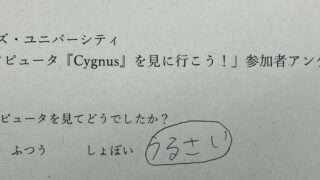 ズ・ユニバーシティ
ピュータ『Cygnus』を見に行こう!」参加者アン
ピュータを見てどうでしたか?
ふつう しょぼい うるさい